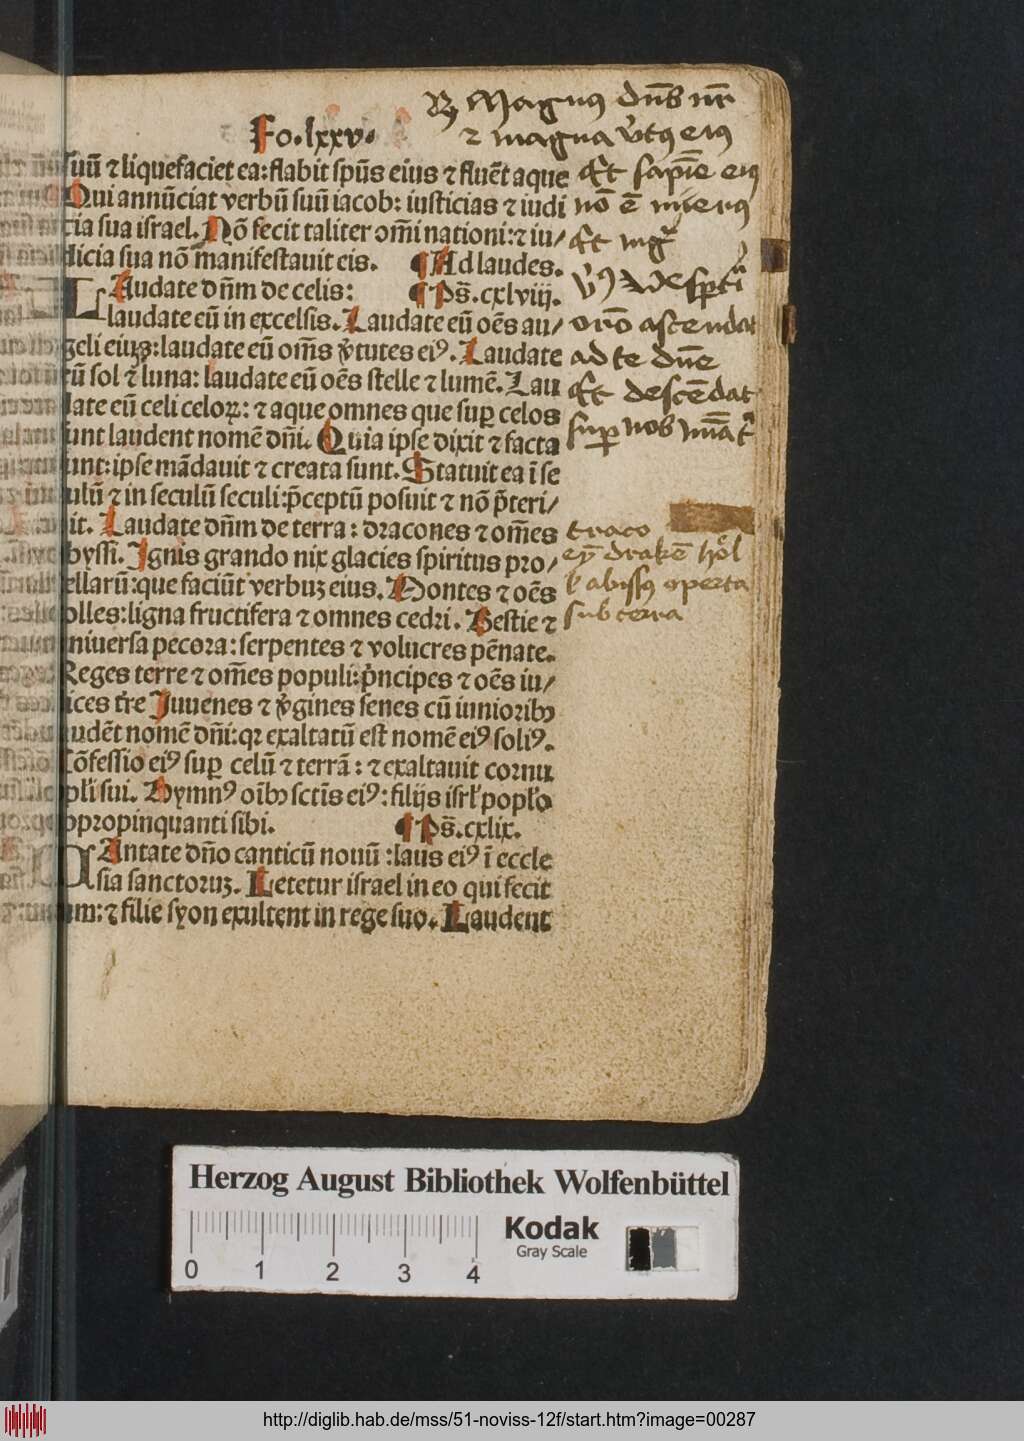 Fo.lxxv.
suū ⁊ liquefaciet ea: flabit spūs eius ⁊ fluēt aque
Qui annūciat verbū suū iacob: iusticias ⁊ iudi
cia sua israel. Nō fecit taliter om̄i nationi: ⁊ iu/
dicia sua nō manifestauit eis. ¶ Ad laudes.
LAudate dn̄m de celis: ¶ Ps̄. cxlviij.
laudate eū in excelsis. Laudate eū oēs au/
geli eiꝰ: laudate eū om̄s v̾tutes eiꝰ. Laudate
ū sol ⁊ luna: laudate eū oēs stelle ⁊ lumē. Lau
date eū celi celoꝝ: ⁊ aque omnes que suꝑ celos
unt laudent nomē dn̄i. Quia ipse dixit ⁊ facta
unt: ipse mādauit ⁊ creata sunt. Statuit ea ī se
ulū ⁊ in seculū seculi: p̄ceptū posuit ⁊ nō p̄teri/
it. Laudate dn̄m de terra: dracones ⁊ om̄es
byssi. Ignis grando nix glacies spiritus pro/
ellarū: que faciūt verbuꝫ eius. Montes ⁊ oēs
olles: ligna fructifera ⁊ omnes cedri. Bestie ⁊
niuersa pecora: serpentes ⁊ volucres pēnate.
Reges terre ⁊ om̄es populi: pͥncipes ⁊ oēs iu/
ices tr̄re Juuenes ⁊ v̾gines senes cū iunioribꝰ
udēt nomē dn̄i: qꝛ exaltatū est nomē eiꝰ soliꝰ.
Cōfessio eiꝰ suꝑ celū ⁊ terrā: ⁊ exaltauit cornu
pl̄i sui. Hymnꝰ oībꝰ sctīs eiꝰ: filijs isrl̄ popl̄o
ppropinquanti sibi. ¶ Ps̄. cxlix.
CAntate dn̄o canticū nouū: laus eiꝰ ī eccle
sia sanctoruꝫ. Letetur israel in eo qui fecit
um: ⁊ filie syon exultent in rege suo. Laudent
℞ Magnus dn̄s nr̄
⁊ magna v̾tꝰ eiꝰ
Et sapīe eiꝰ
nō ē nūerꝰ
Et
oro ascendat
ad te dn̄e
Et descēdat
suꝑ nos
traco
eyn̄ drakē
abissꝰ operta
sub terra
Herzog August Bibliothek Wolfenbüttel
0 1 2 3 4
Kodak
Gray Scale
http://diglib.hab.de/mss/51-noviss-12f/start.htm?image=00287